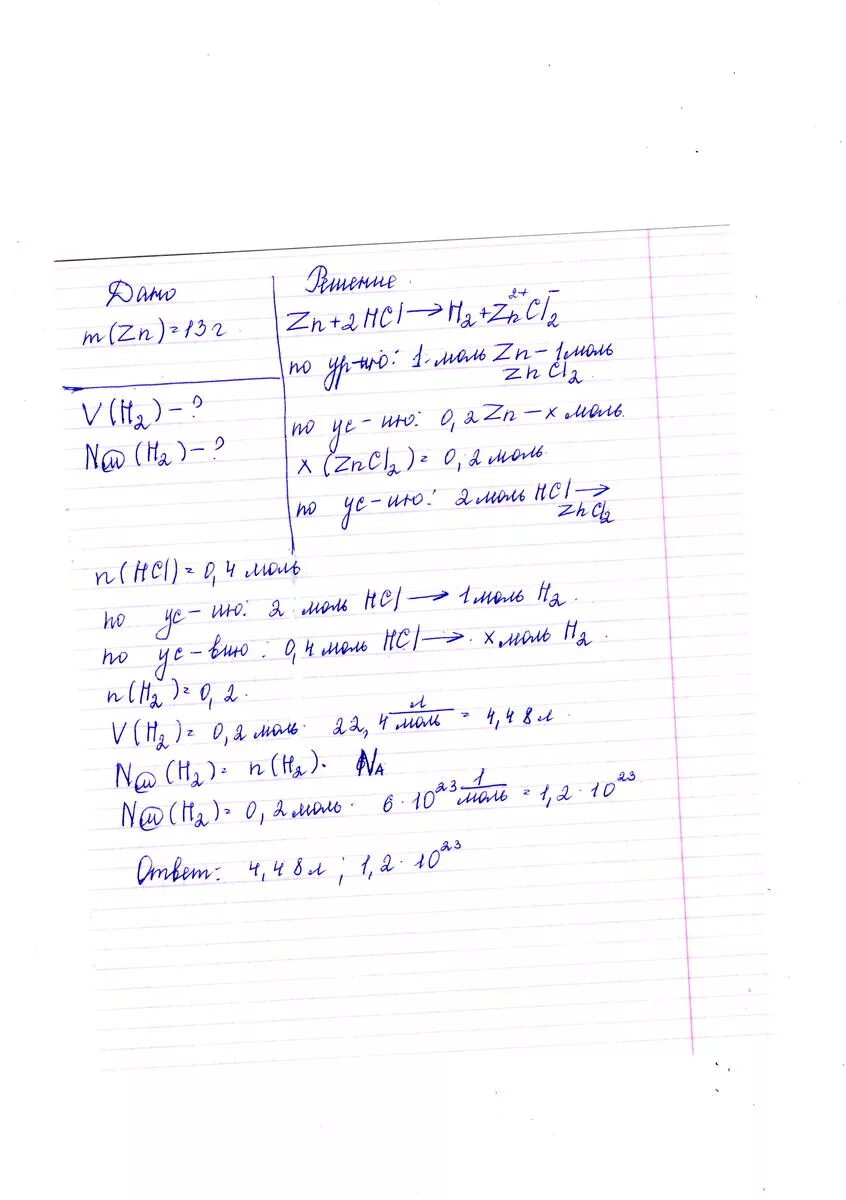 Дано
m(Zn)=13г
V(H₂)-?
N(H₂)-?
Решение.
Zn+2HCl→H₂+Zn²⁺Cl₂⁻
по ур-ию: 1 моль Zn-1моль
ZnCl₂.
по ус-ию: 0,2 Zn-x моль.
x(ZnCl₂)=0,2 моль.
по ус-ию: 2 моль HCl→
ZnCl₂
n(HCl)=0,4 моль
по ус-ию: 2 моль HCl→1 моль H₂.
по ус-вию: 0,4 моль HCl→x моль H₂.
n(H₂)=0,2.
V(H₂)=0,2 моль · 22,4 л/моль = 4,48 л.
N(H₂)=n(H₂)· Nᴀ
N(H₂)=0,2 моль · 6·10²³ 1/моль = 1,2·10²³
Ответ: 4,48л; 1,2·10²³